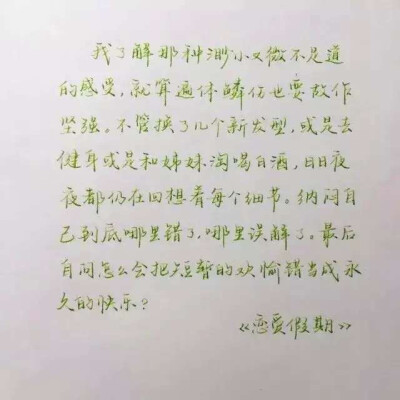 我了解那种渺小又微不足道
的感受,就算遍体鳞伤也要故作
坚强。不管换了几个新发型,或是去
健身或是和姊妹淘喝白酒,日日夜
夜都仍在回想着每个细节。纳闷自
己到底哪里错了,哪里误解了。最后
自问怎么会把短暂的欢愉错当成永
久的快乐?
《恋爱假期》